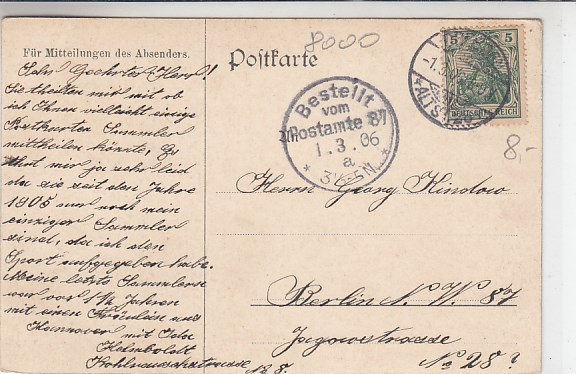 Für Mitteilungen des Absenders.
Postkarte
8000
Sehr Geehrter Herr!
Sie theilten mir mit ob
ich Ihnen vielleicht einige
Postkarten Sammler
mittheilen könnte, Es
thut mir ja sehr leid
da sie seit den Jahre
1905 nur noch mein
einziger Sammler
sind, da ich den
Sport aufgegeben habe.
Meine letzte Sammlerin
war vor 1½ Jahren
mit einem Fräulein aus
Hannover mit Ida
Helmboldt
No 8.
Bestellt
vom
Postamte 87
1. 3. 06
a
N.
5
DEUTSCHES REICH
ALTST
8,-
Herrn Georg Kindow
Berlin N. W. 87
Jagowstrasse
No 28?